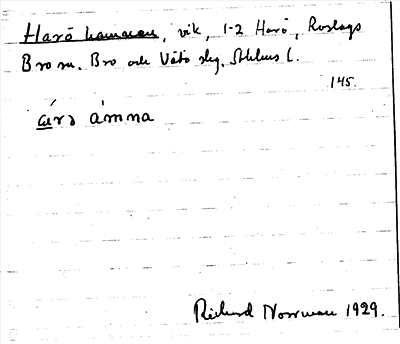 Harö hamnen, vik, 1-2 Harö, Roslags
Bro sn. Bro och Vätö slg, Sthlms l.
145.
ára ámna
Rickard Norrman 1929.